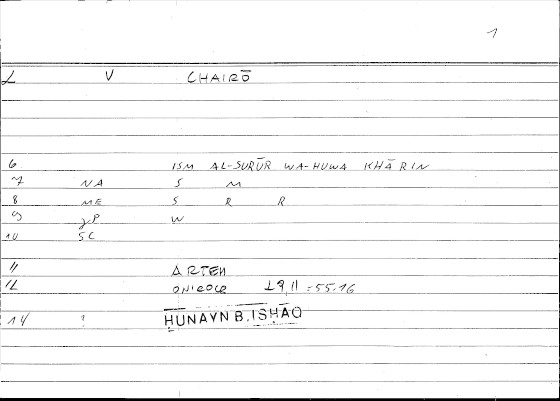 1
2 V CHAIRŌ
6 ISM AL-SURŪR WA-HUWA KHĀRIN
7 NA S M
8 ME S R R
9 JP W
10 SC
11 ARTEM
12 ONIROCR 29,11 = 55.16
14 ? ḤUNAYN B. ISḤĀQ